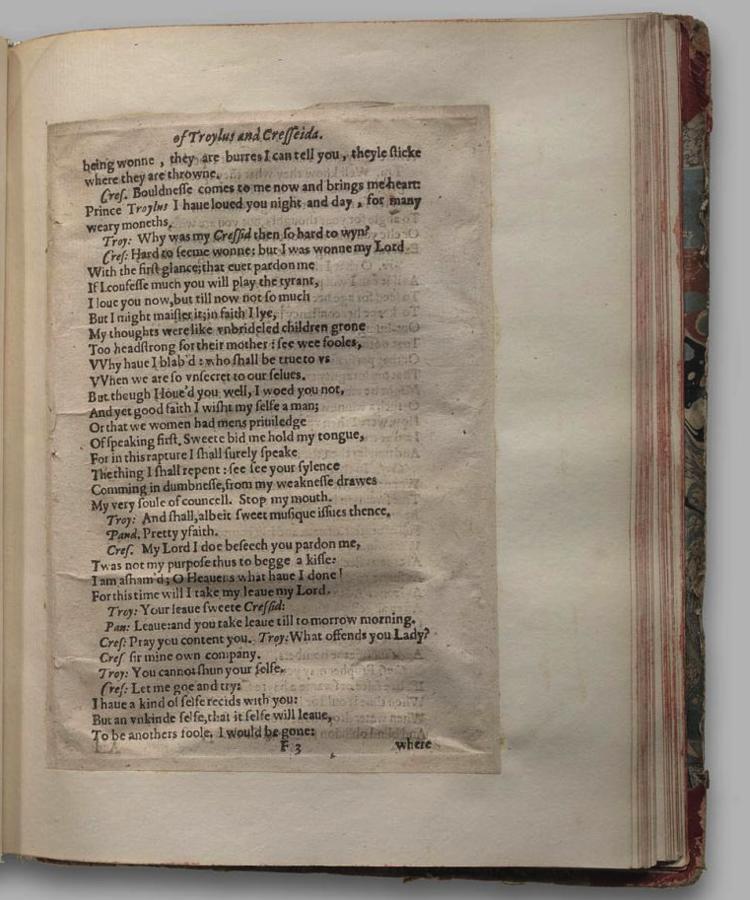 of Troylus and Cresseida.
being wonne , they are burres I can tell you , theyle sticke
where they are throwne.
Cres. Bouldnesse comes to me now and brings me heart:
Prince Troylus I haue loued you night and day , for many
weary moneths.
Troy: Why was my Cressid then so hard to wyn?
Cres: Hard to seeme wonne: but I was wonne my Lord
With the first glance; that euer pardon me
If I confesse much you will play the tyrant,
I loue you now, but till now not so much
But I might maister it; in faith I lye,
My thoughts were like vnbrideled children grone
Too headstrong for their mother : see wee fooles,
VVhy haue I blab'd : who shall be true to vs
VVhen we are so vnsecret to our selues.
But though I loue'd you well, I woed you not,
And yet good faith I wisht my selfe a man;
Or that we women had mens priuiledge
Of speaking first. Sweete bid me hold my tongue,
For in this rapture I shall surely speake
The thing I shall repent : see see your sylence
Comming in dumbnesse, from my weaknesse drawes
My very soule of councell. Stop my mouth.
Troy: And shall, albeit sweet musique issues thence.
Pand. Pretty yfaith.
Cres. My Lord I doe beseech you pardon me,
Twas not my purpose thus to begge a kisse:
I am asham'd; O Heauens what haue I done!
For this time will I take my leaue my Lord.
Troy: Your leaue sweete Cressid:
Pan: Leaue: and you take leaue till to morrow morning.
Cres: Pray you content you. Troy: What offends you Lady?
Cres sir mine own company.
Troy: You cannot shun your selfe.
Cres: Let me goe and try:
I haue a kind of selfe recids with you:
But an vnkinde selfe, that it selfe will leaue,
To be anothers foole. I would be gone:
F 3 where